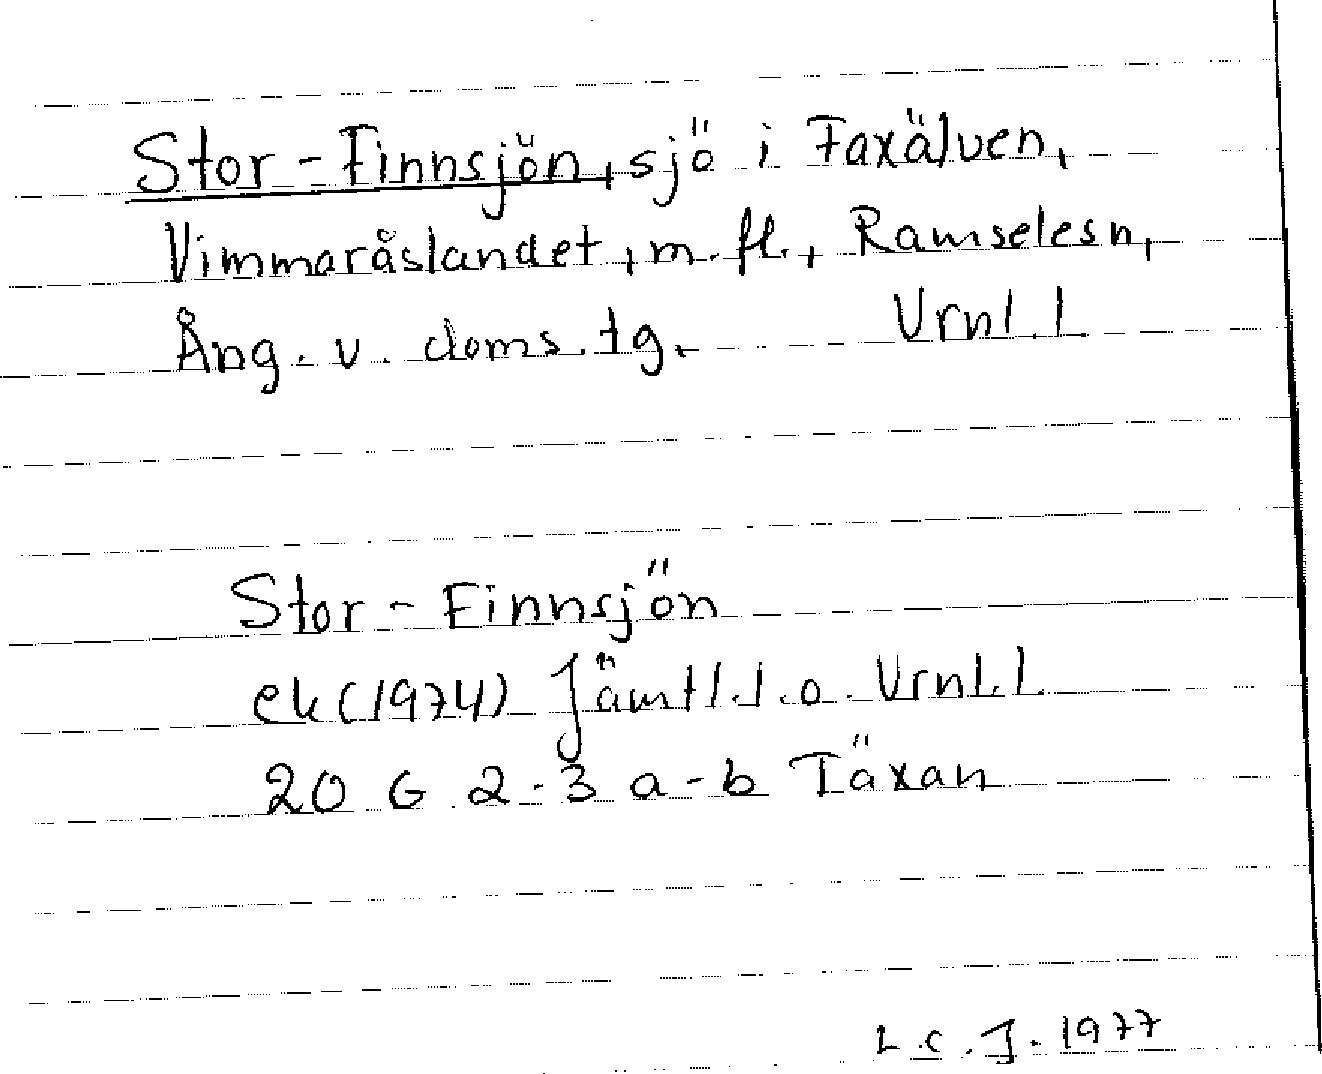 Stor-Finnsjön, sjö i Faxälven,
Vimmaråslandet, m. fl., Ramselesn,
Ång. v. doms. tg. Vrnl. l
Stor-Finnsjön
ek (1974) Jämtl. l. o. Vrnl. l.
20 G 2-3 a-b Täxan
L.C.J. 1977